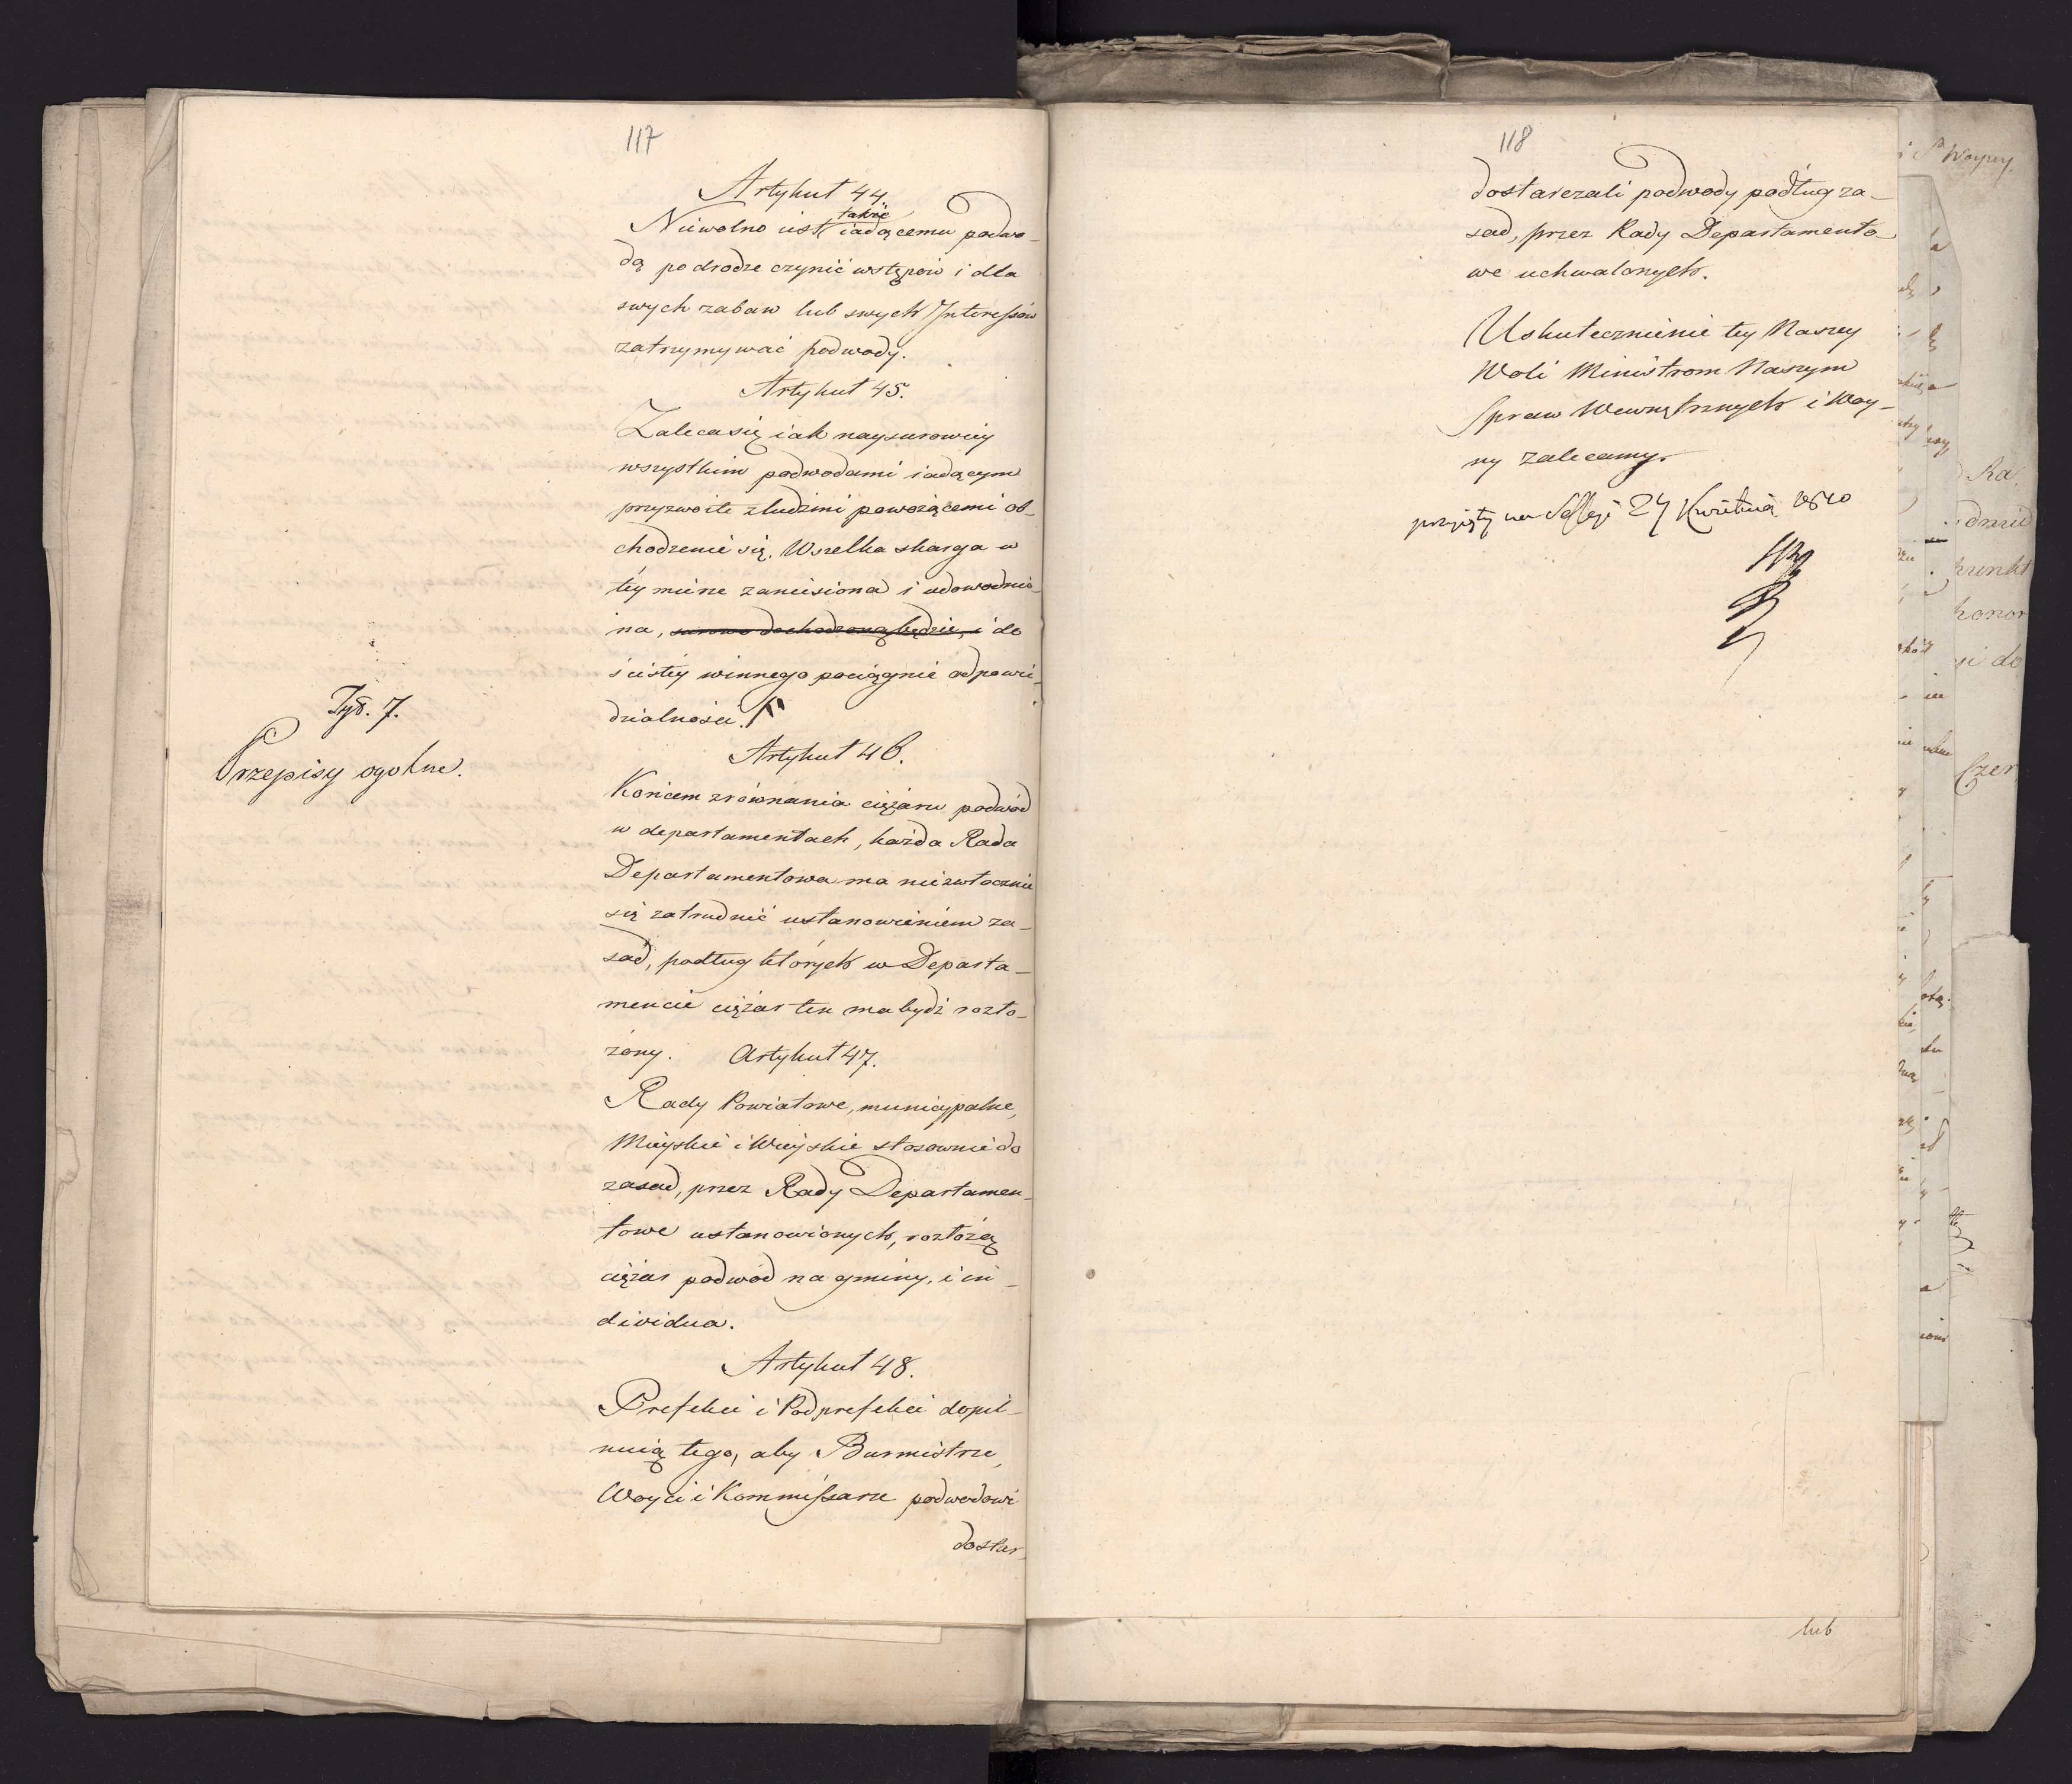 117
Artykuł 44.
Niewolno iest także iadącemu podwo-
dą po drodze czynić wstępów i dla
swych zabaw lub swych Interessów
zatrzymywać podwody.
Artykuł 45.
Zaleca się iak naysurowiey
wszystkim podwodami iadącym
przyzwoite z ludźmi powożącemi ob-
chodzenie się, Wszelka skarga w
téy mierze zaniesiona i udowodnio-
na, surowo dochodzoną będzie, i do
ścisłéy winnego pociągnie odpowie-
dzialności.
Tyt. 7.
Przepisy ogólne.
Artykuł 46.
Końcem zrównania ciężaru podwód
w departamentach, każda Rada
Departamentowa ma niezwłocznie
się zatrudnić ustanowieniem za-
sad, podług których w Departa-
mencie ciężar ten ma bydź rozło-
żony. Artykuł 47.
Rady Powiatowe, municypalne,
Mieyskie i Wieyskie stosownie do
zasad, przez Rady Departamen-
towe ustanowionych, rozłożą
ciężar podwód na gminy, i in-
dividua.
Artykuł 48.
Prefekci i Podprefekci dopil-
nuią tego, aby Burmistrze,
Woyci i Kommissarze podwodowi
dostar-
118
dostarczali podwody podług za-
sad, przez Rady Departamento-
we uchwalonych.
Uskutecznienie tey Naszey
Woli Ministrom Naszym
Spraw Wewnętrznych i Woy-
ny zalecamy.
przyięty na Sessyi 24 Kwietnia 1810
Woyny.
Ra
punkt
honor
i do
Czer
lub